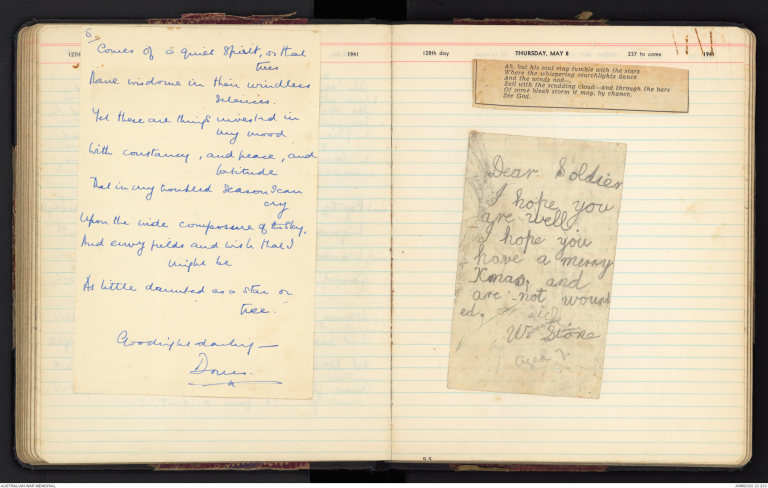 6
127th
1941
Comes of a quiet spirit, or that
trees
Have wisdome in their windless
silences.
Yet these are things invested in
my mood
With constancy, and peace, and
fortitude
That in my troubled season I can
cry
Upon the wide composure of the sky,
And envy fields and wish that I
might be
As little daunted as a star or
tree."
Goodnight darling —
128th day
THURSDAY, MAY 8
237 to come
1941
Ah, but his soul may tumble with the stars
Where the whispering searchlights dance
And the winds nod—
Sail with the scudding cloud—and through the bars
Of some bleak storm it may, by chance,
See God.
Dear Soldier
I hope you
are well
I hope you
have a merry
Xmas, and
are not wound
ed.
Stone
AUSTRALIAN WAR MEMORIAL
AWM2020.22.223